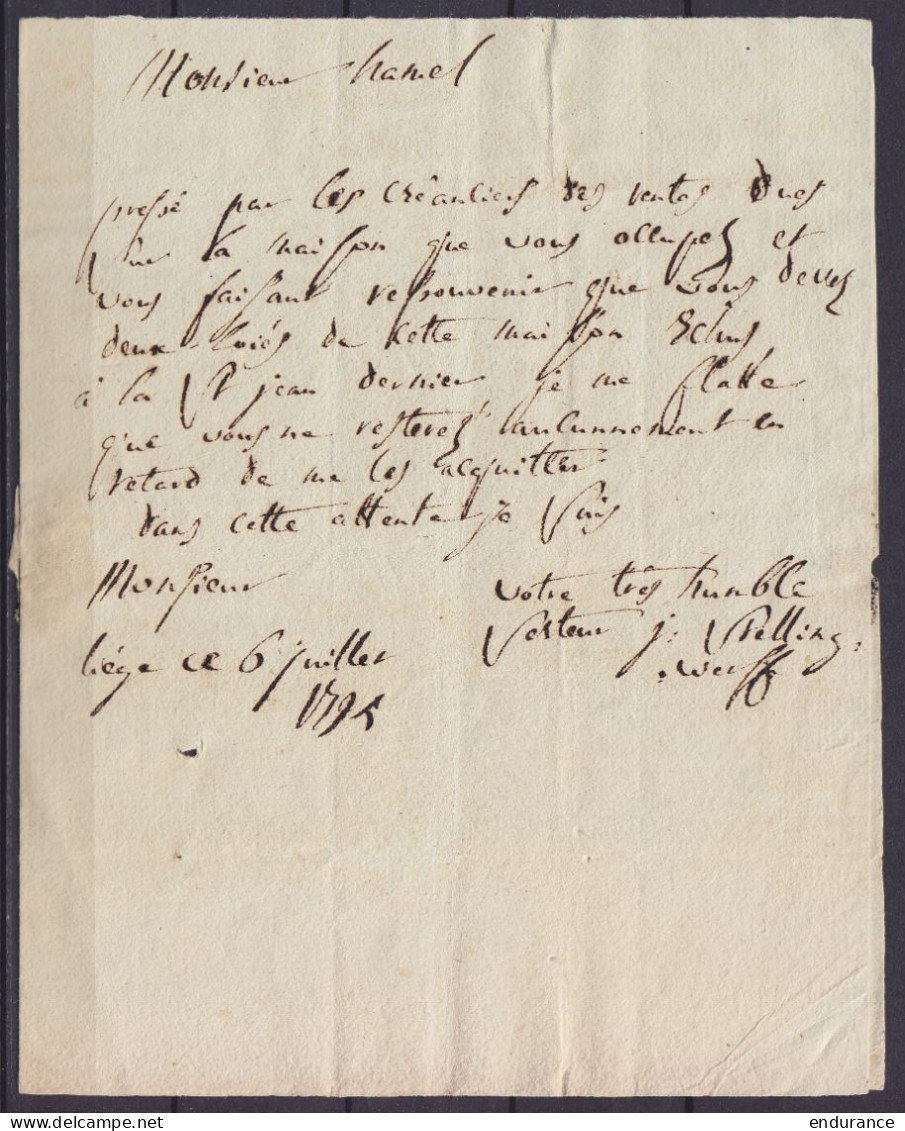 Monsieur hamel
pressé par les créantiers des rentes dues
sur la maison que vous occupez et
vous faisant ressouvenir que vous devez
deux de cette maison Echus
à la St jean dernier je me flatte
que vous ne resterez aucunnement en
retard de me les acquitter
dans cette attente je suis
Monsieur
votre très humble
liége ce 6 juillet
j: Spelling
werff
1795
endurance